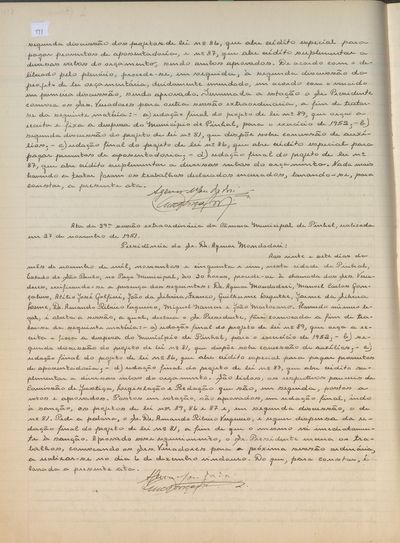 segunda discussão dos projetos de lei nº 86, que abre crédito especial para
pagar proventos de aposentadoria, e nº 87, que abre crédito suplementar a
diversas verbas do orçamento, sendo ambos aprovados. De acordo com o de-
liberado pelo plenário, procede-se, em seguida, à segunda discussão do
projeto de lei orçamentária, devidamente emendado, de acordo com o vencido
em primeira discussão, sendo aprovado. Terminada a votação o Sr. Presidente
convoca os Srs. Vereadores para outra sessão extraordinária, a fim de tratar-
se da seguinte matéria: - a) redação final do projeto de lei nº 89, que orça a
receita e fixa a despesa do Município de Pinhal, para o exercício de 1952, - b)
segunda discussão do projeto de lei nº 81, que dispõe sobre concessão de auxí-
lios, - c) redação final do projeto de lei nº 86, que abre crédito especial para
pagar proventos de aposentadoria; - d) redação final do projeto de lei nº
87, que abre crédito suplementar a diversas verbas do orçamento. Nada mais
havendo a tratar foram os trabalhos declarados encerrados, lavrando-se, para
constar, a presente ata.
Ata da 29ª sessão extraordinária da Câmara Municipal de Pinhal, realizada
em 27 de novembro de 1951.
Presidência do Sr. Dr. Agenor Mondadori:
Aos vinte e sete dias do
mês de novembro de mil, novecentos e cinquenta e um, nesta cidade de Pinhal,
Estado de São Paulo, no Paço Municipal, às 20 horas, procede-se à chamada dos Srs. Verea-
dores, verificando-se a presença dos seguintes: Dr. Agenor Mondadori, Manoel Carlos Gon-
çalves, José
João da Silveira Franco, Guilherme
Dr. Romundo Ribeiro
Miguel
e João
Havendo número le-
gal, é aberta a sessão, a qual, declara o Sr. Presidente, fôra convocada a fim de tra-
tar-se da seguinte matéria: - a) redação final do projeto de lei nº 89, que orça a re-
ceita e fixa a despesa do Município de Pinhal, para o exercício de 1952; - b) se-
gunda discussão do projeto de lei nº 81, que dispõe sobre concessão de auxílios; - c)
redação final do projeto de lei nº 86, que abre crédito especial para pagar proventos
de aposentadoria; - d) redação final do projeto de lei nº 87, que abre crédito su-
plementar a diversas verbas do orçamento. São lidos os respectivos pareceres da
Comissão de Justiça, Legislação e Redação que são, em seguida, postos em
votos e aprovados. Postos em votação, são aprovados, em redação final, indo
à sanção, os projetos de lei nºs 89, 86 e 87 e, em segunda discussão, o de
nº 81. Pede a palavra, o Sr. Dr. Romundo Ribeiro e requer dispensa da re-
dação final do projeto de lei nº 81, a fim de que o mesmo vá imediatamen-
te à sanção. Aprovado esse requerimento, o Sr. Presidente encerra os tra-
balhos, convocando os Srs. Vereadores para a próxima sessão ordinária,
a realizar-se no dia 6 de dezembro vindouro. Do que, para constar, é
lavrada a presente ata.